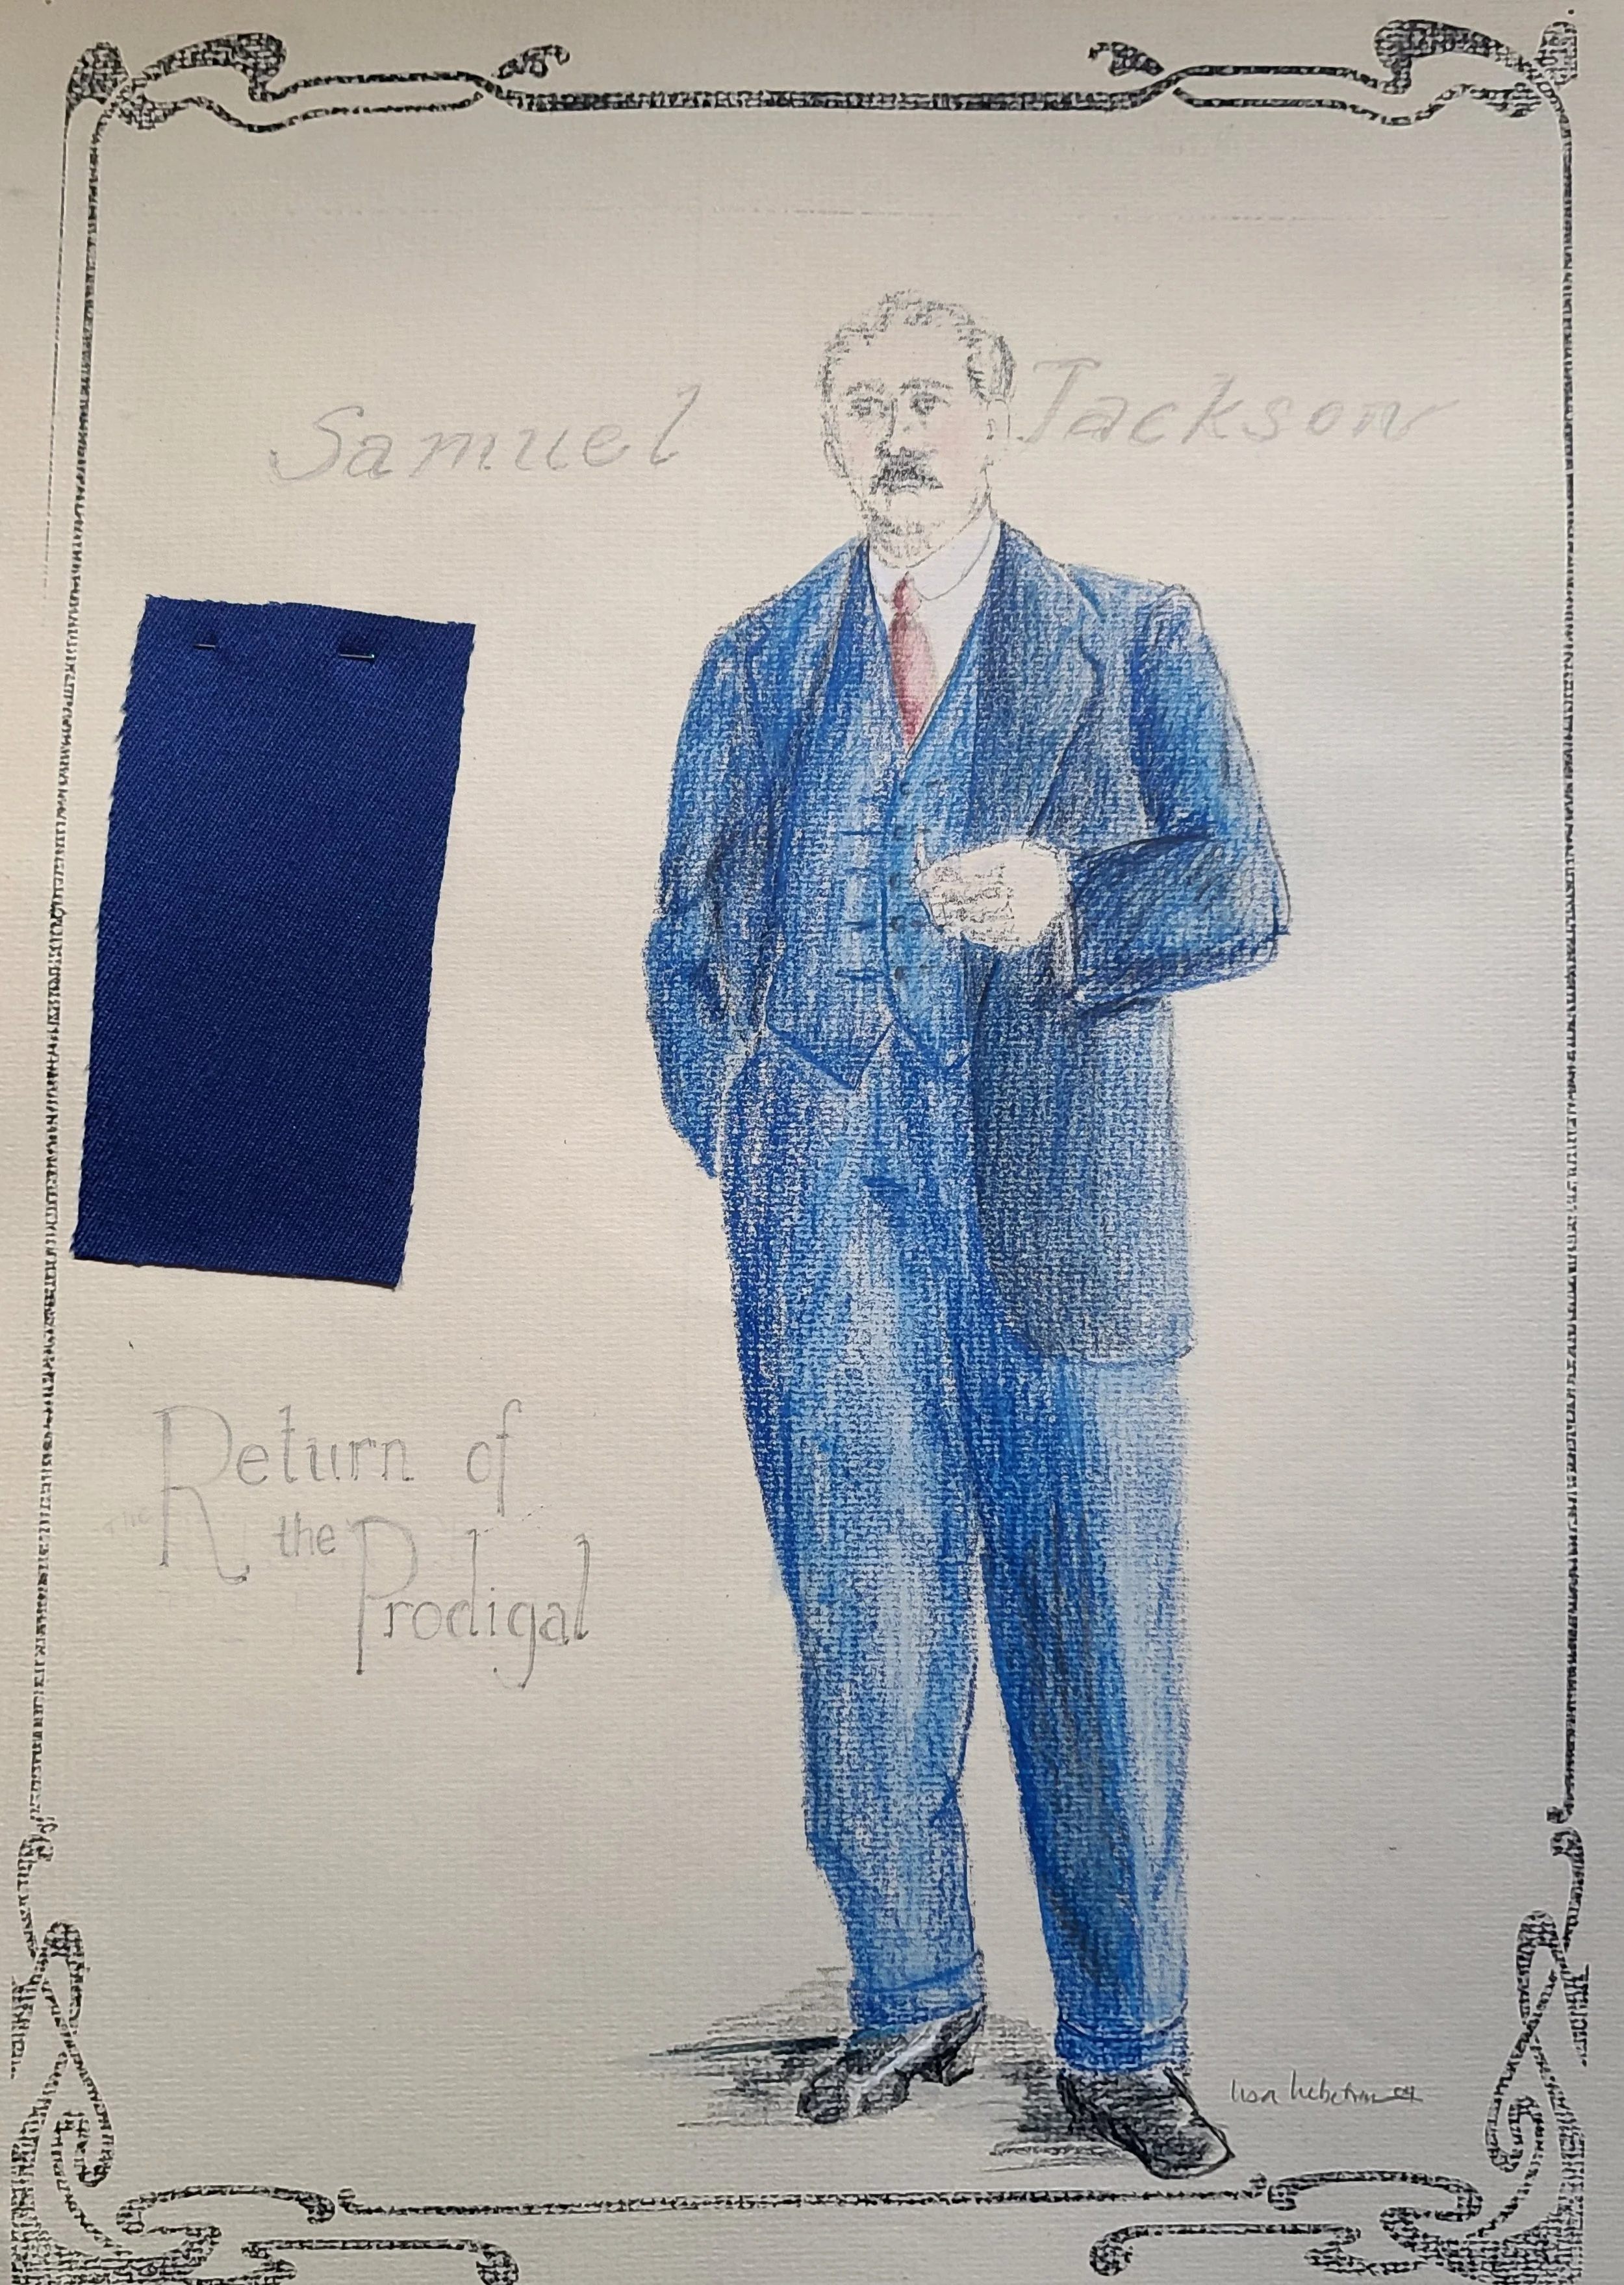 Samuel Jackson
The Return of
the Prodigal
lisa